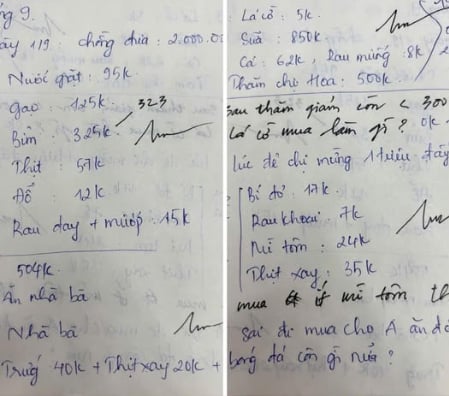 g 9.
ày 1/9 : chồng đưa : 2.000.0
Nước giặt : 95k
Gạo : 125k
323
Bỉm : 325k
Thịt : 57k
Đỗ : 12k
Rau đay + mướp : 15k
504k.
Ăn nhà bà
Nhà bà
Trứng 40k + Thịt xay 20k +
Lá cờ : 5k.
Sữa : 850k
Cá : 62k, Rau muống : 8k
Thăm chị Hoa : 500k
sau thăm gián còn < 300
Lá cờ mua làm gì ? ok
lúc đẻ chị mừng 1 triệu đấy
Bí đỏ : 17k
Rau khoai 7k
Mì tôm : 24k
Thịt xay : 35k
mua ít mì tôm th
Sai đi mua cho A ăn đá
bóng đá còn gì nữa ?